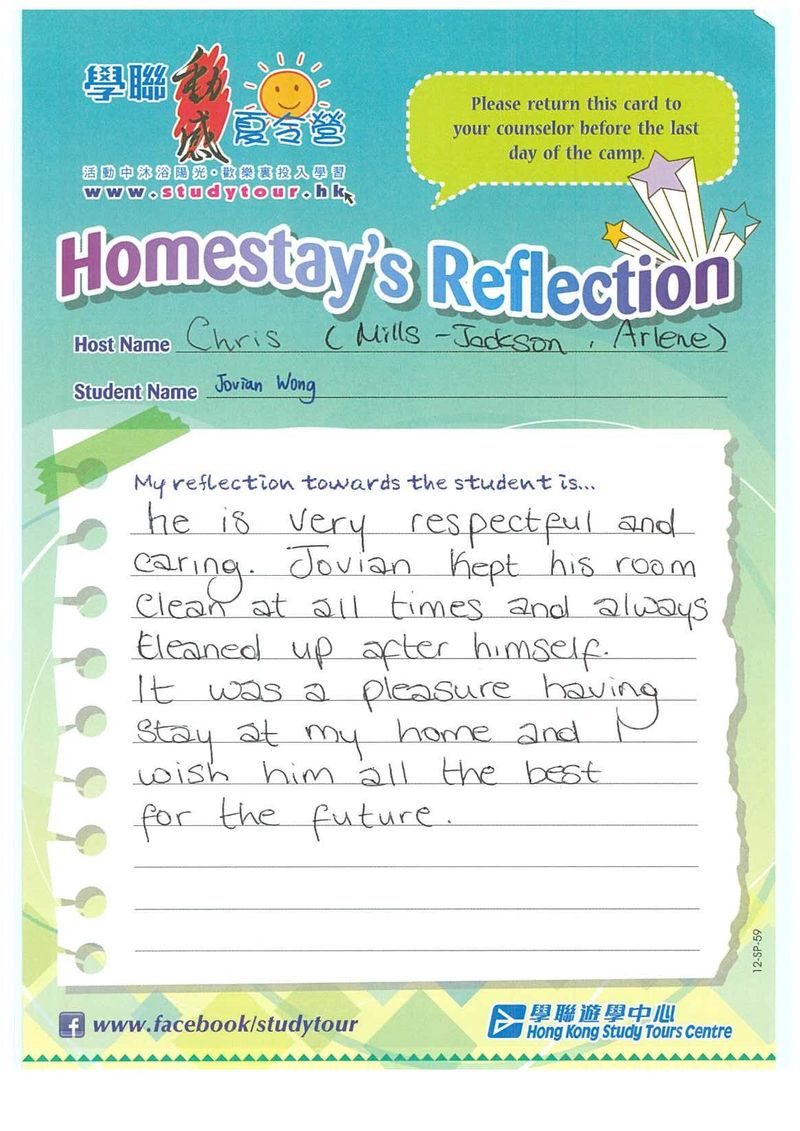 學聯 動感 夏令營
活動中沐浴陽光・歡樂裏投入學習
www.studytour.hk
Please return this card to
your counselor before the last
day of the camp.
Homestay's Reflection
Host Name Chris (Mills-Jackson, Arlene)
Student Name Jovian Wong
My reflection towards the student is...
he is very respectful and
caring. Jovian kept his room
clean at all times and always
cleaned up after himself.
It was a pleasure having
stay at my home and I
wish him all the best
for the future.
12-SP-59
www.facebook/studytour
學聯遊學中心
Hong Kong Study Tours Centre